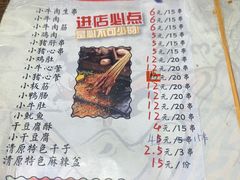 小牛肉生串 6元/15串
小牛肉 6元/15串
小筋肉 6元/15串
小猪肝串 5元/15串
小心管 5元/15串
小鸡肚 12元/20串
小牛心管 12元/20串
小猪心管 12元/20串
小板筋 12元/20串
小鸭肠 12元/20串
小牛肚 12元/20串
小鱿鱼 12元/20串
干豆腐酥 4元/15串
小干豆腐 4元/15串
清原特色干子 2.5元/3串
清原特色麻辣荟 15元/份
进店必点